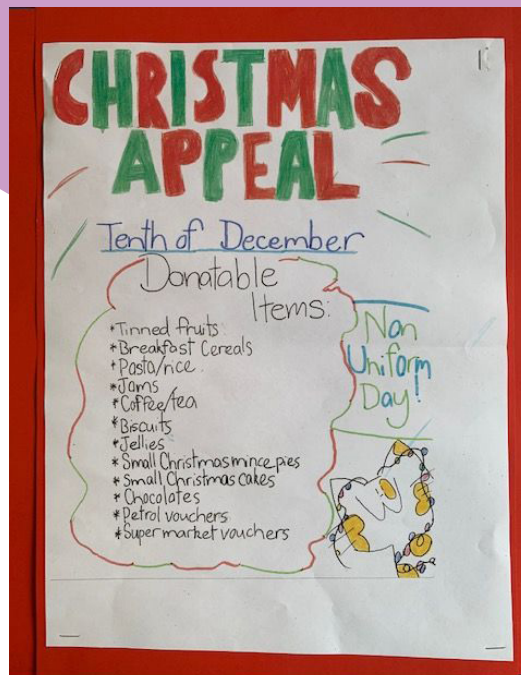 CHRISTMAS
APPEAL
Tenth of December
Donatable
Items:
*Tinned fruits
*Breakfast Cereals
*Pasta/rice
*Jams
*Coffee/tea
*Biscuits
*Jellies
*Small Christmas mince pies
*Small Christmas cakes
*Chocolates
*Petrol vouchers
*Supermarket vouchers
Non
Uniform
Day!